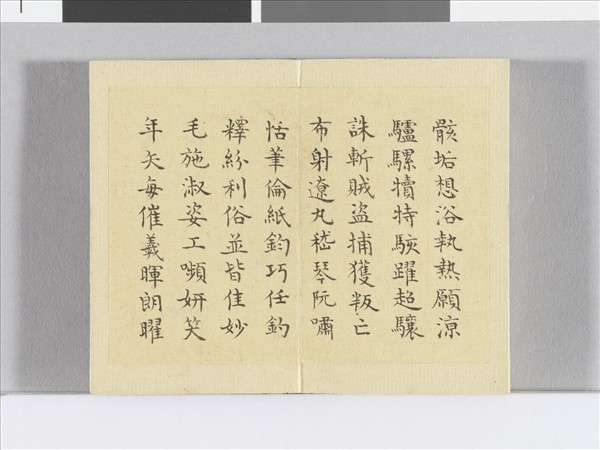 骸垢想浴執熱願涼
驢騾犢特駭躍超驤
誅斬賊盜捕獲叛亡
布射遼丸嵇琴阮嘯
恬筆倫紙鈞巧任釣
釋紛利俗並皆佳妙
毛施淑姿工嚬妍笑
年矢每催羲暉朗曜